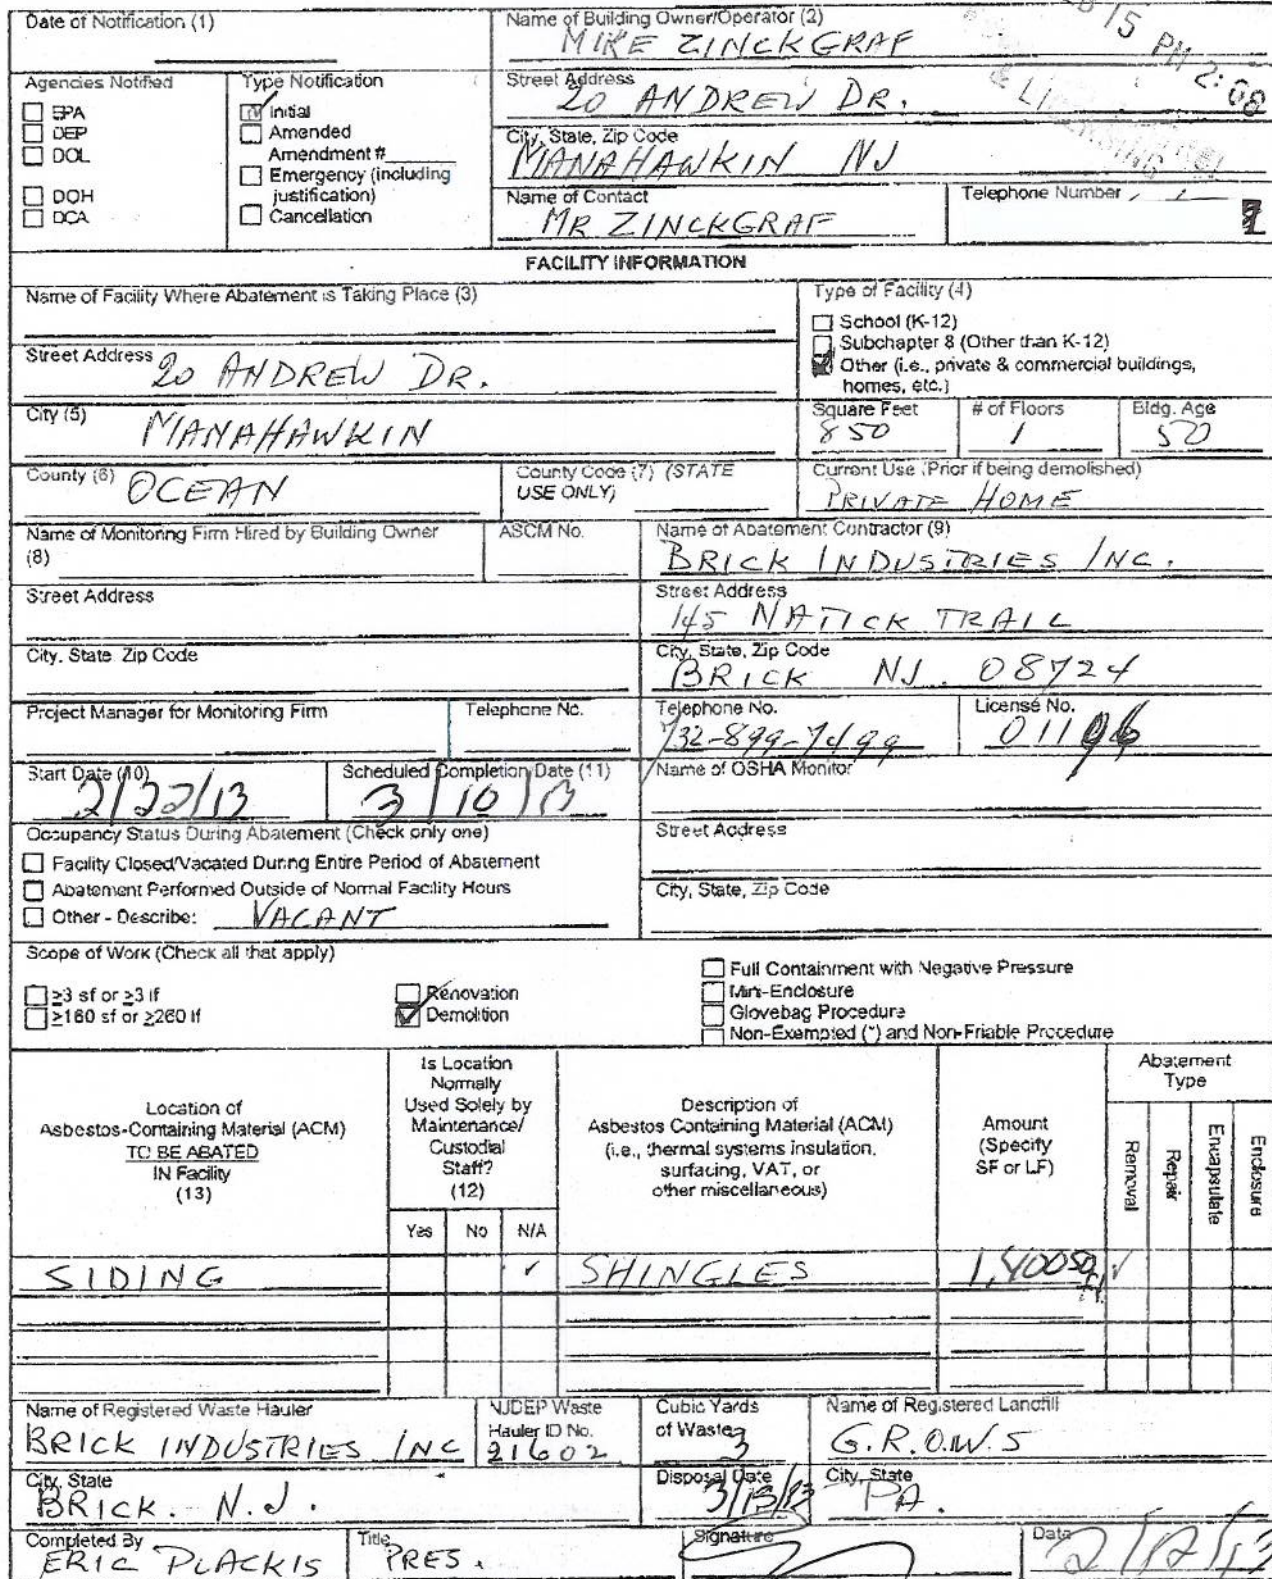 Date of Notification (1)
Name of Building Owner/Operator (2)
MIKE ZINCKGRAF
15 PM 2:08
Agencies Notified
EPA
DEP
DOL
DOH
DCA
Type Notification
Initial
Amended
Amendment #
Emergency (including
justification)
Cancellation
Street Address
20 ANDREW DR.
City, State, Zip Code
MANAHAWKIN NJ
Name of Contact
MR ZINCKGRAF
Telephone Number
FACILITY INFORMATION
Name of Facility Where Abatement is Taking Place (3)
Type of Facility (4)
School (K-12)
Subchapter 8 (Other than K-12)
Other (i.e., private & commercial buildings,
homes, etc.)
Street Address
20 ANDREW DR.
City (5)
MANAHAWKIN
Square Feet
850
# of Floors
1
Bldg. Age
50
County (6)
OCEAN
County Code (7) (STATE
USE ONLY)
Current Use (Prior if being demolished)
PRIVATE HOME
Name of Monitoring Firm Hired by Building Owner
(8)
ASCM No.
Name of Abatement Contractor (9)
BRICK INDUSTRIES INC.
Street Address
Street Address
145 NATICK TRAIL
City, State Zip Code
City, State, Zip Code
BRICK NJ. 08724
Project Manager for Monitoring Firm
Telephone No.
Telephone No.
732-899-7499
License No.
01196
Start Date (10)
2/22/13
Scheduled Completion Date (11)
3/10/13
Name of OSHA Monitor
Occupancy Status During Abatement (Check only one)
Facility Closed/Vacated During Entire Period of Abatement
Abatement Performed Outside of Normal Facility Hours
Other - Describe: VACANT
Street Address
City, State, Zip Code
Scope of Work (Check all that apply)
≥3 sf or ≥3 lf
≥160 sf or ≥260 lf
Renovation
Demolition
Full Containment with Negative Pressure
Mini-Enclosure
Glovebag Procedure
Non-Exempted (*) and Non-Friable Procedure
Location of
Asbestos-Containing Material (ACM)
TO BE ABATED
IN Facility
(13)
Is Location
Normally
Used Solely by
Maintenance/
Custodial
Staff?
(12)
Yes No N/A
Description of
Asbestos Containing Material (ACM)
(i.e., thermal systems insulation,
surfacing, VAT, or
other miscellaneous)
Amount
(Specify
SF or LF)
Abatement
Type
Removal
Repair
Encapsulate
Enclosure
SIDING ✓ SHINGLES 1,400 SQ FT. ✓
Name of Registered Waste Hauler
BRICK INDUSTRIES INC
NJDEP Waste
Hauler ID No.
21602
Cubic Yards
of Waste
3
Name of Registered Landfill
G.R.O.W.S
City, State
BRICK. N.J.
Disposal Date
3/13/13
City, State
PA.
Completed By
ERIC PLACKIS
Title
PRES.
Signature
Date
2/12/13